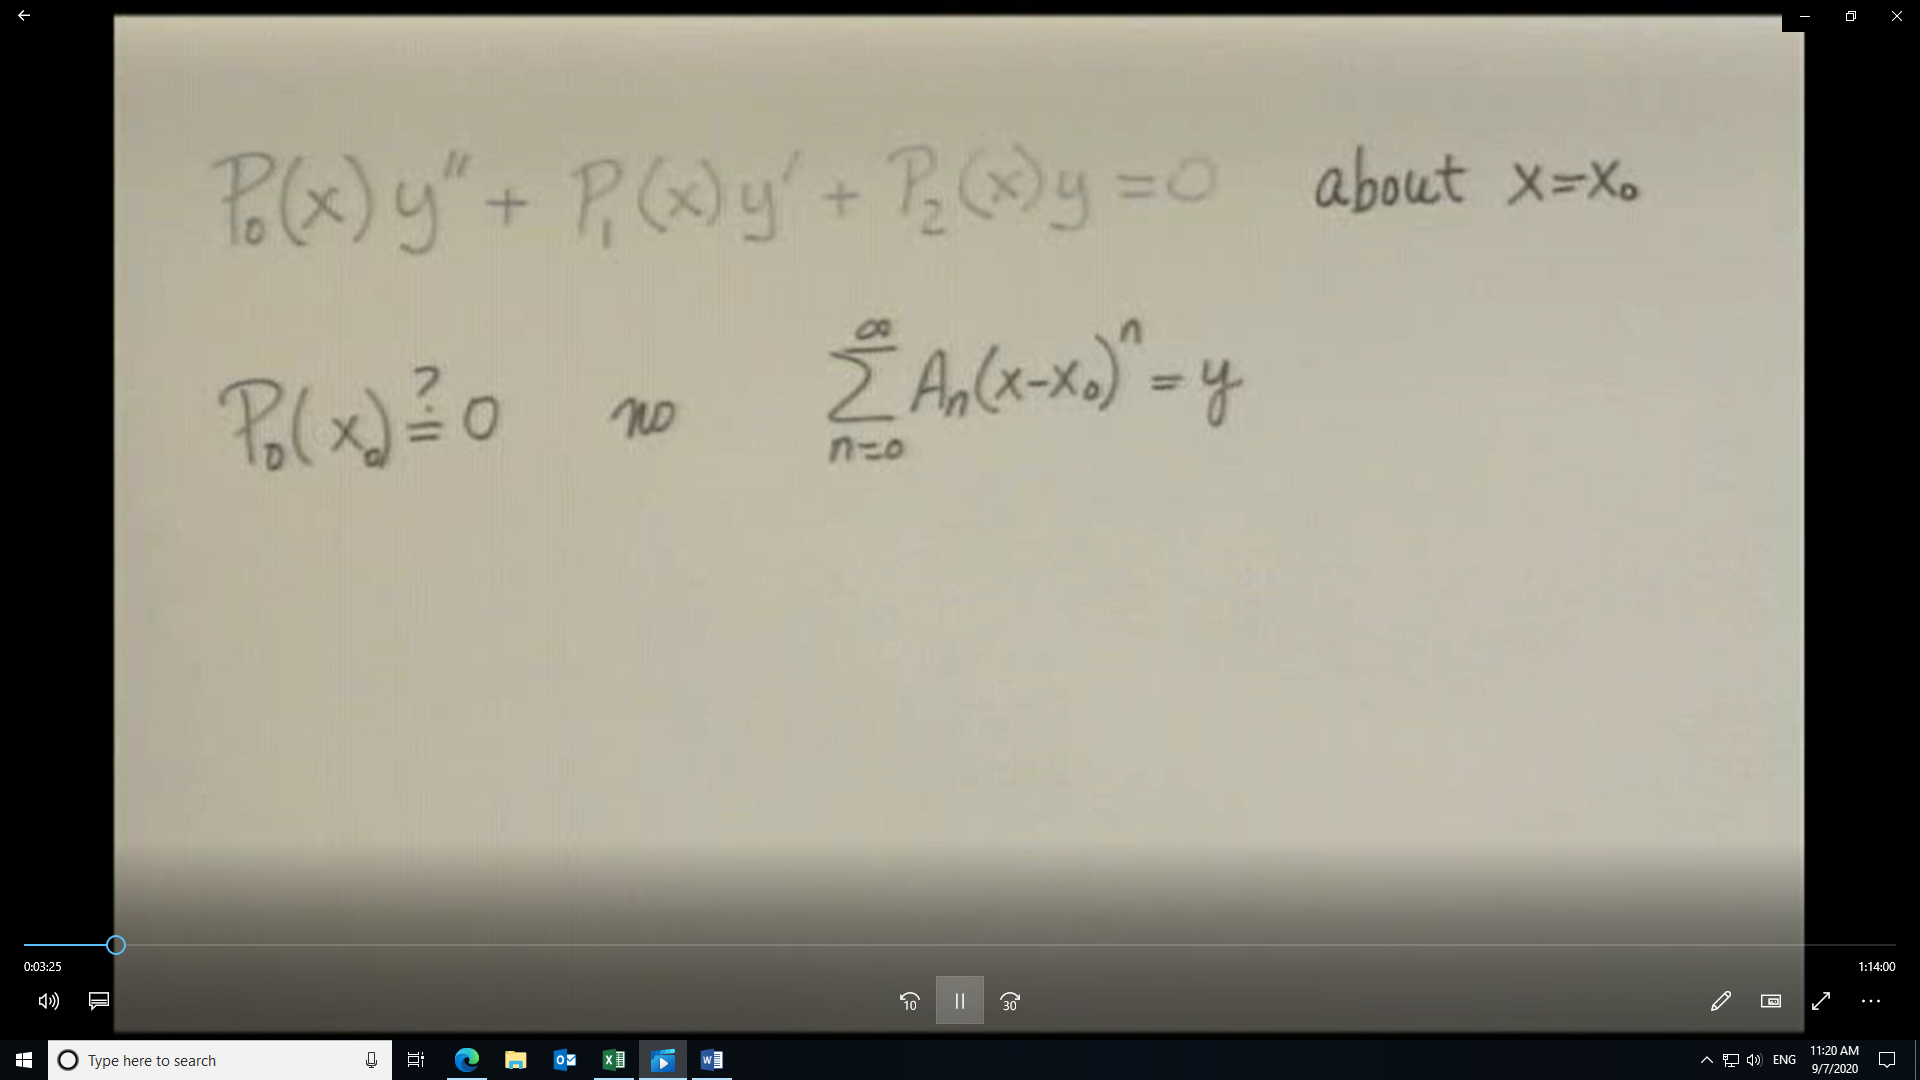 P₀(x) y'' + P₁(x) y' + P₂(x) y = 0 about x=x₀
P₀(x₀) ≟ 0 no ∑_{n=0}^{∞} Aₙ(x-x₀)ⁿ = y
0:03:25
1:14:00
10
30
Type here to search
ENG
11:20 AM
9/7/2020